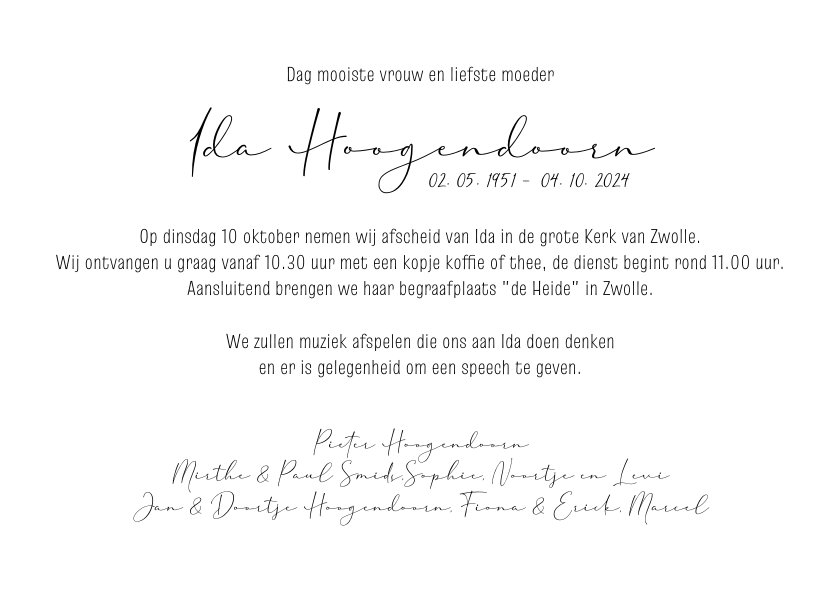 Dag mooiste vrouw en liefste moeder
Ida Hoogendoorn
02. 05. 1951 - 04. 10. 2024
Op dinsdag 10 oktober nemen wij afscheid van Ida in de grote Kerk van Zwolle.
Wij ontvangen u graag vanaf 10.30 uur met een kopje koffie of thee, de dienst begint rond 11.00 uur.
Aansluitend brengen we haar begraafplaats "de Heide" in Zwolle.
We zullen muziek afspelen die ons aan Ida doen denken
en er is gelegenheid om een speech te geven.
Pieter Hoogendoorn
Mirthe & Paul Smids,Sophie, Noortje en Levi
Jan & Doortje Hoogendoorn, Fiona & Erick, Marcel